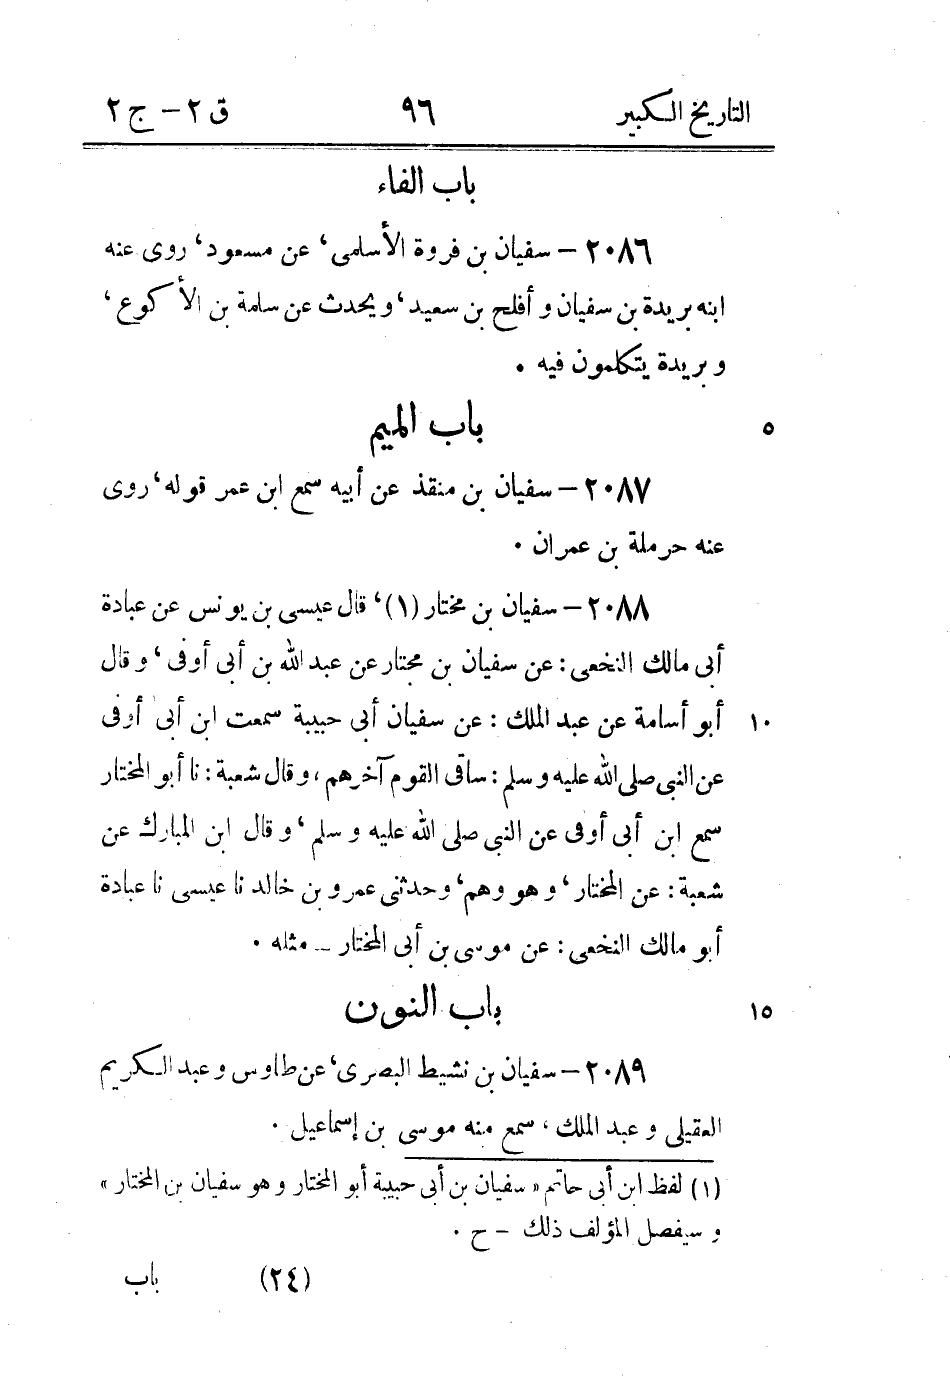 التاريخ الكبير ٩٦ ق ٢ – ج ٢
باب الفاء
٢٠٨٦ – سفيان بن فروة الأسلمى، عن مسعود، روى عنه
ابنه بريدة بن سفيان و أفلح بن سعيد، و يحدث عن سلمة بن الأكوع،
و بريدة يتكلمون فيه .
باب الميم ٥
٢٠٨٧ – سفيان بن منقذ عن أبيه سمع ابن عمر قوله، روى
عنه حرملة بن عمران .
٢٠٨٨ – سفيان بن مختار (١)، قال عيسى بن يونس عن عبادة
أبى مالك النخعى: عن سفيان بن مختار عن عبد الله بن أبى أوفى، و قال
أبو أسامة عن عبد الملك: عن سفيان أبى حبيبة سمعت ابن أبى أوفى ١٠
عن النبى صلى الله عليه و سلم: ساقى القوم آخرهم، و قال شعبة: نا أبو المختار
سمع ابن أبى أوفى عن النبى صلى الله عليه و سلم، و قال ابن المبارك عن
شعبة: عن المختار، و هو وهم، و حدثنى عمرو بن خالد نا عيسى نا عبادة
أبو مالك النخعى: عن موسى بن أبى المختار – مثله .
باب النون ١٥
٢٠٨٩ – سفيان بن نشيط البصرى، عن طاوس و عبد الكريم
العقيلى و عبد الملك، سمع منه موسى بن إسماعيل .
(١) لفظ ابن أبى حاتم « سفيان بن أبى حبيبة أبو المختار و هو سفيان بن المختار »
و سيفصل المؤلف ذلك – ح .
(٢٤) باب